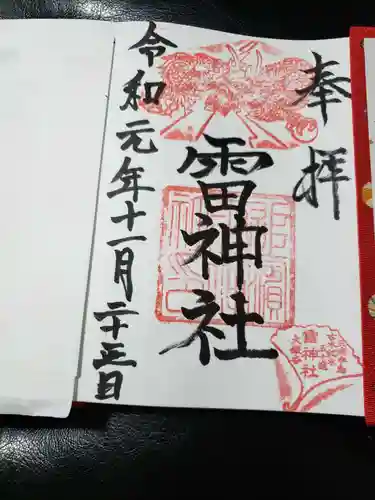 奉拝
雷神社
令和元年十一月二十五日
雷神社